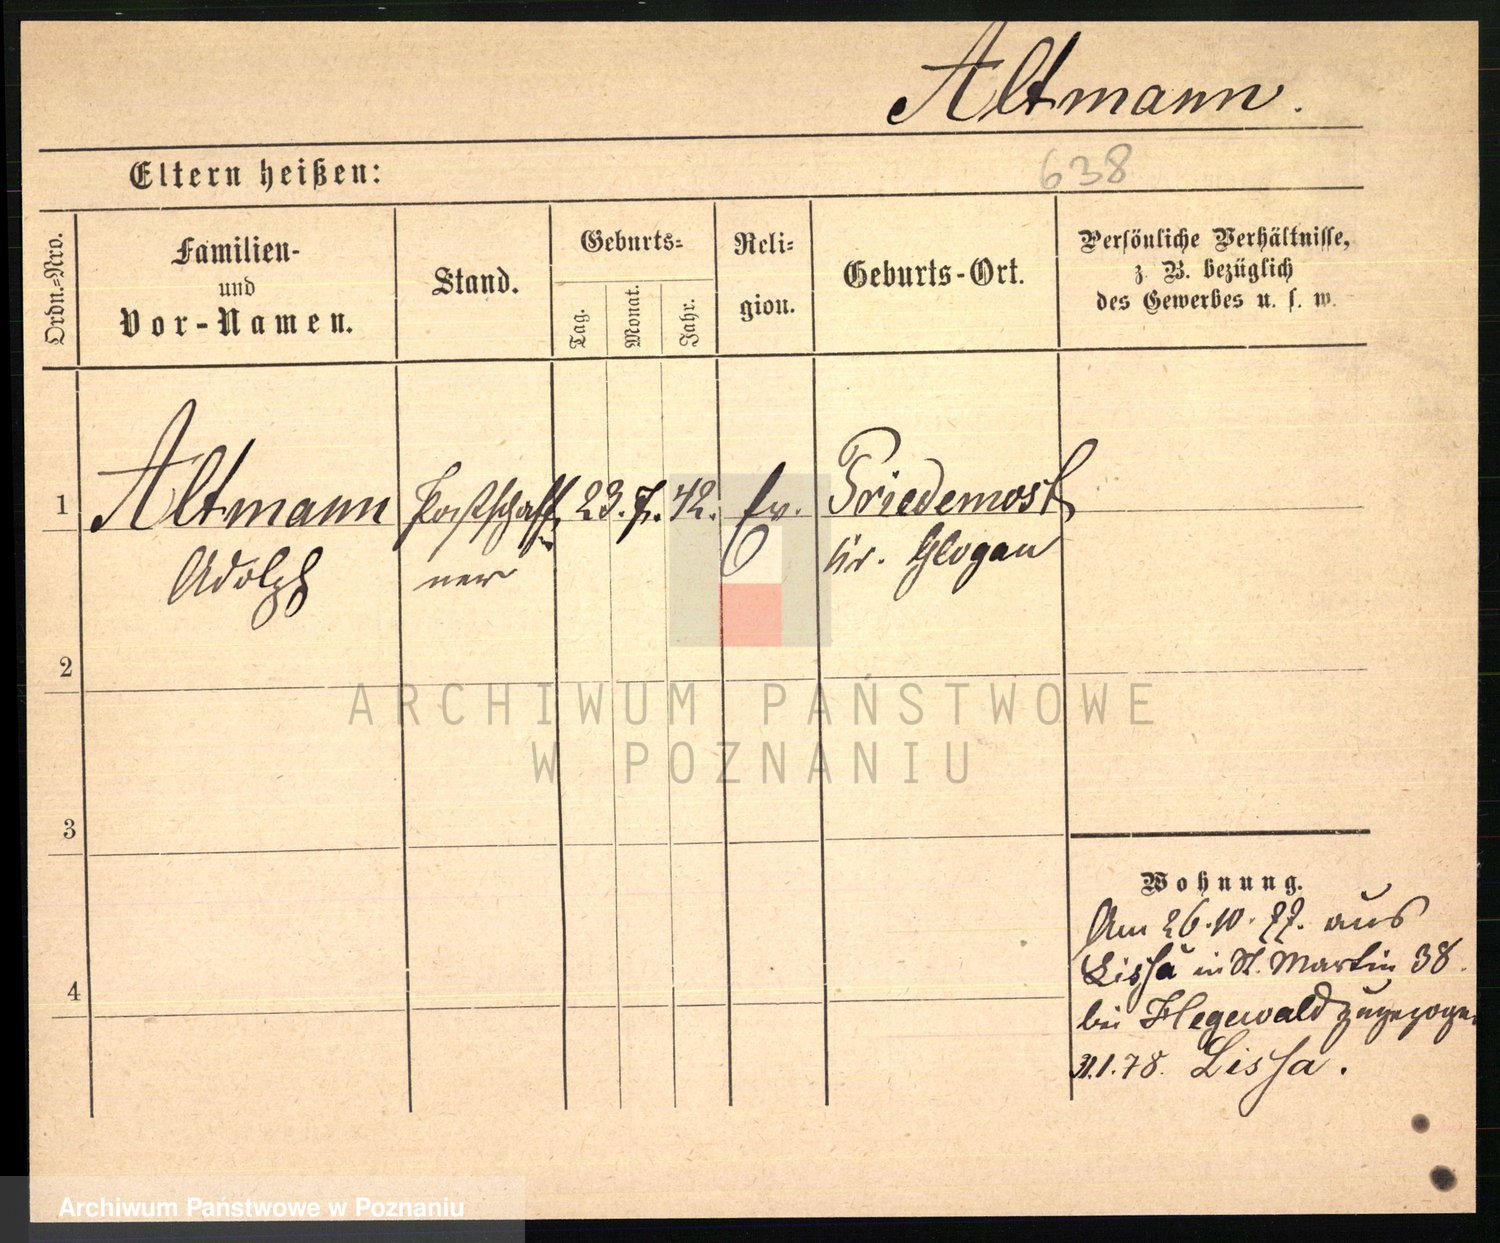 Altmann.
Eltern heißen:
638
Ordn.=Nro.
Familien-
und
Vor-Namen.
Stand.
Geburts=
Tag.
Monat.
Jahr.
Reli=
gion.
Geburts-Ort.
Persönliche Verhältnisse,
z. B. bezüglich
des Gewerbes u. s. w.
1 Altmann Postschaff 23. 7. 42. Ev. Priedemost
Adolph ner Kr. Glogau
2
3
4
Wohnung.
Am 26.10.77. aus
Lissa in St. Martin 38.
bei Hegewald zugezogen
31.1.78. Lissa.
ARCHIWUM PAŃSTWOWE
W POZNANIU
Archiwum Państwowe w Poznaniu